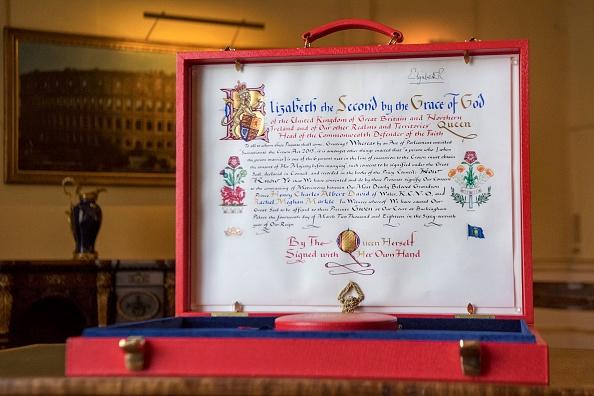 Elizabeth R
Elizabeth the Second by the Grace of God
of the United Kingdom of Great Britain and Northern
Ireland and of Our other Realms and Territories Queen
Head of the Commonwealth Defender of the Faith
To all to whom these Presents shall come, Greeting! Whereas by an Act of Parliament entituled
Succession to the Crown Act 2013, it is amongst other things enacted that "a person who [when
the person marries] is one of the 6 persons next in the line of succession to the Crown must obtain
the consent of Her Majesty before marrying", such consent to be signified under the Great
Seal, declared in Council, and recorded in the books of the Privy Council: Now
Know Ye that We have consented and do by these Presents signify Our Consent
to the contracting of Matrimony between Our Most Dearly Beloved Grandson
Prince Henry Charles Albert David of Wales, K.C.V.O., and
Rachel Meghan Markle In Witness whereof We have caused Our
Great Seal to be affixed to these Presents Given at Our Court at Buckingham
Palace the fourteenth day of March Two Thousand and Eighteen in the Sixty-seventh
year of Our Reign
By The Queen Herself
Signed with Her Own Hand